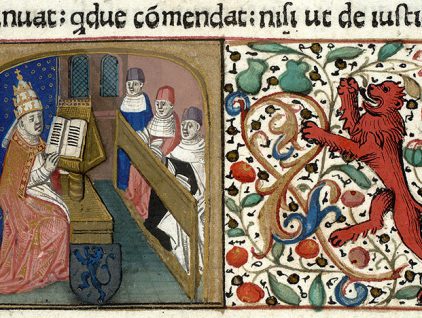 nuat: qdue cōmendat: nisi ut de iusti